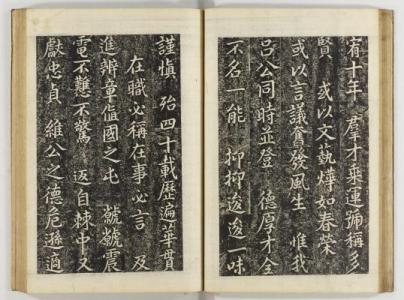 宥十年 群才乘運 號稱多
賢 或以文藝燁如春榮
或以言議奮發風生 惟我
呂公同時並登 德厚才全
不名一能 抑抑逡逡一味
謹愼 殆四十載歷遍華貫
在職必稱在事必言 及
進辨章値國之屯 虩虩震
電不戁不驚 返自棘中又
獻忠貞 維公之德危遜適